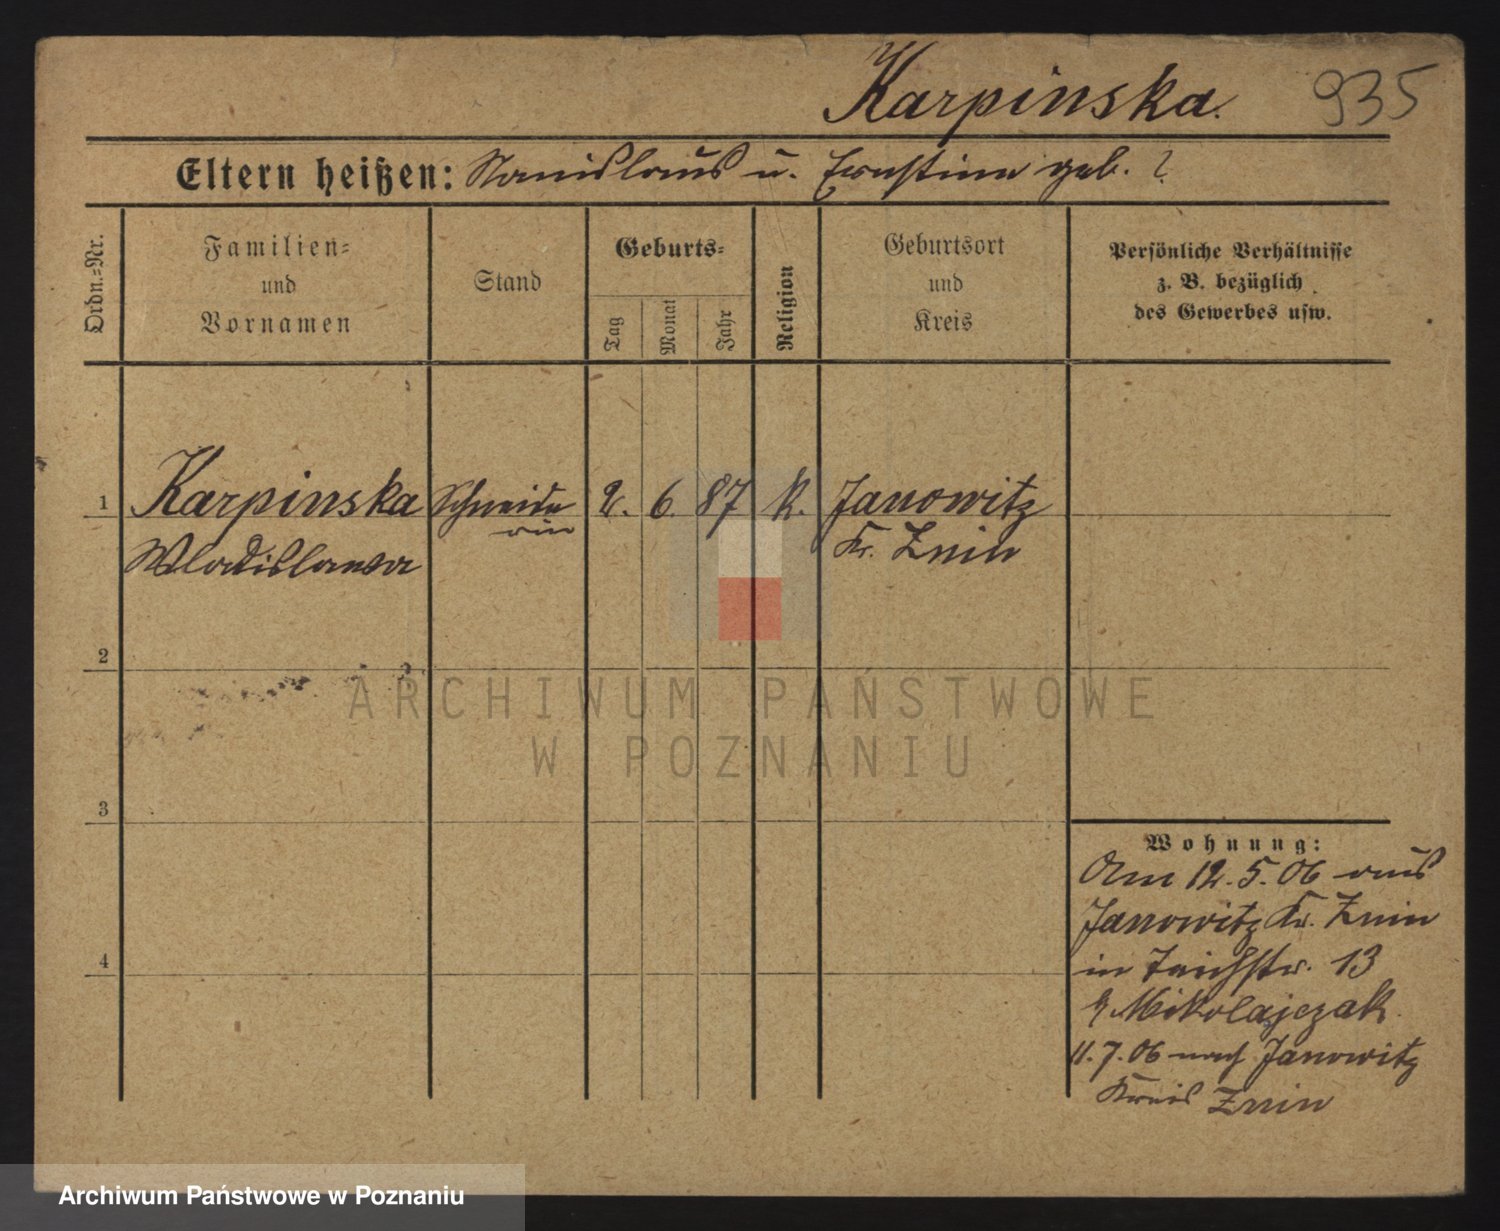 Karpinska. 935
Eltern heißen: Stanislaus u. Ernstine geb. ?
Ordn.=Nr.
Familien=
und
Vornamen
Stand
Geburts=
Tag
Monat
Jahr
Religion
Geburtsort
und
Kreis
Persönliche Verhältnisse
z. B. bezüglich
des Gewerbes usw.
1 Karpinska Schneide 2. 6. 87 k. Janowitz
rin Kr. Znin
Wladislawa
2
3
4
Wohnung:
Am 12. 5. 06 aus
Janowitz Kr. Znin
in Teichstr. 13
b. Mikolajczak
11. 7. 06 nach Janowitz
Kreis Znin
ARCHIWUM PAŃSTWOWE
W POZNANIU
Archiwum Państwowe w Poznaniu